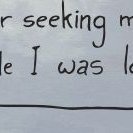 r seeking m
le I was l